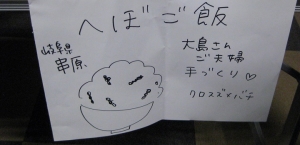 へぼご飯
岐阜県
串原
大島さん
ご夫婦
手づくり♡
クロスズメバチ